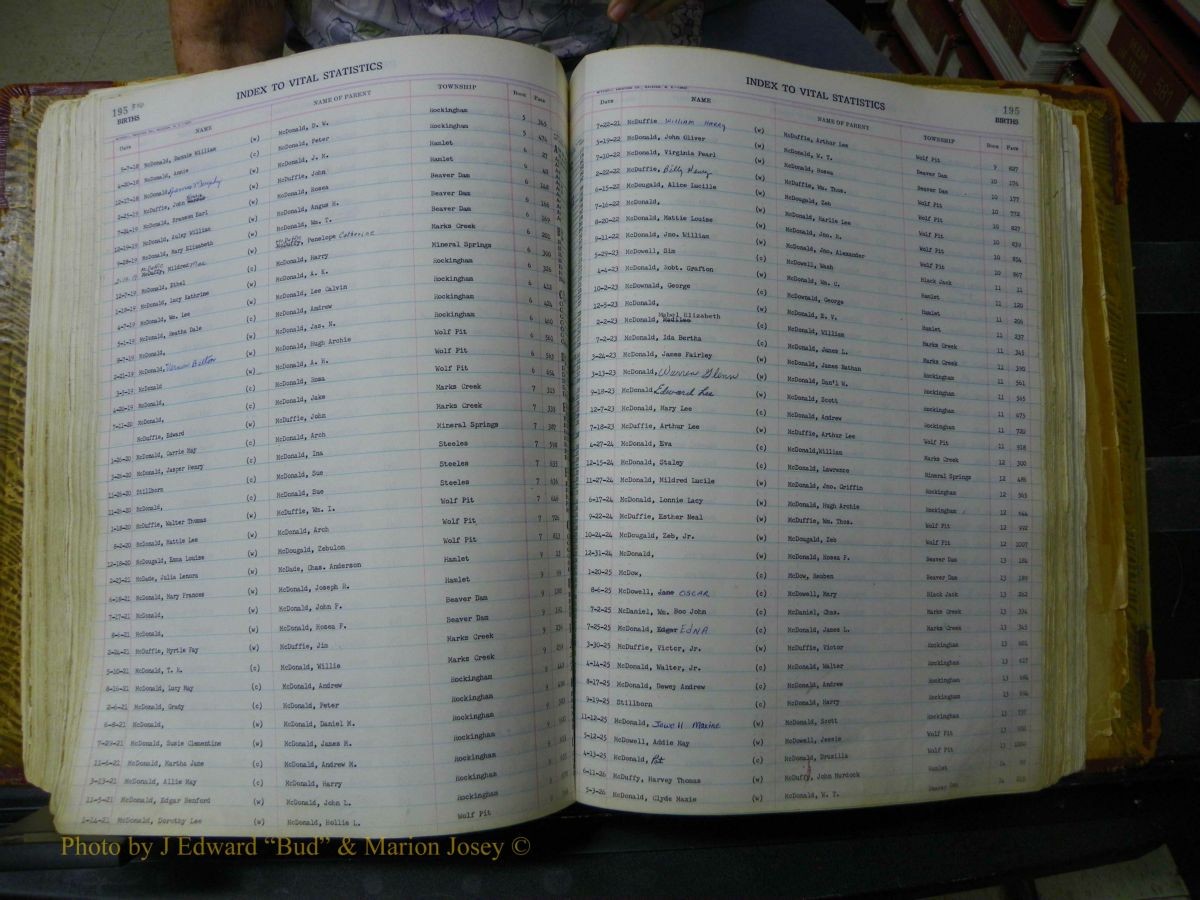 INDEX TO VITAL STATISTICS
195
BIRTHS
Date NAME NAME OF PARENT TOWNSHIP Book Page
McDonald, Dannie William (w) McDonald, D. W. Rockingham 5 345
4-20-18 McDonald, Annie (c) McDonald, Peter Rockingham 5 474
12-17-18 McDonald, (w) McDonald, J. M. Hamlet 6 27
2-25-19 McDuffie, John (w) McDuffie, John Hamlet
7-24-19 McDonald, Branson Earl (w) McDonald, Hosea Beaver Dam 6
12-19-19 McDonald, Auley William (w) McDonald, Angus M. Beaver Dam 6
9-28-19 McDonald, Mary Elizabeth (w) McDonald, Wm. T. Beaver Dam 6
McDuffy, Mildred Mae (w) McDuffy, Penelope Catherine Marks Creek 6
12-7-19 McDonald, Ethel (c) McDonald, Harry Mineral Springs 6 300
1-18-19 McDonald, Lucy Kathrine (w) McDonald, A. K. Rockingham 6 326
4-7-19 McDonald, Wm. Lee (w) McDonald, Lee Calvin Rockingham 6
5-1-19 McDonald, Heatha Dale (c) McDonald, Andrew Rockingham 6
8-7-19 McDonald, (w) McDonald, Jas. N. Rockingham 6
2-21-19 McDonald, Vernon Belton (w) McDonald, Hugh Archie Wolf Pit 6
3-3-19 McDonald (w) McDonald, A. H. Wolf Pit 6
4-20-19 McDonald, (c) McDonald, Rosa Wolf Pit 6
McDonald, (c) McDonald, Jake Marks Creek 7 313
McDuffie, Edward (w) McDuffie, John Marks Creek 7
1-26-20 McDonald, Carrie May (c) McDonald, Arch Mineral Springs 7 387
McDonald, Jasper Henry (c) McDonald, Ina Steeles 7 598
11-26-20 Stillborn (c) McDonald, Sue Steeles 7
McDonald, (c) McDonald, Sue Steeles 7
McDuffie, Walter Thomas (w) McDuffie, Wm. I. Wolf Pit 7
McDonald, Mattie Lee (c) McDonald, Arch Wolf Pit 7
12-18-20 McDougald, Emma Louise (w) McDougald, Zebulon Wolf Pit 7
2-23-21 McDade, Julia Lenora (w) McDade, Chas. Anderson Hamlet 9
6-18-21 McDonald, Mary Frances (w) McDonald, Joseph R. Hamlet 9
7-27-21 McDonald, (w) McDonald, John F. Beaver Dam 9
8-6-21 McDonald, (w) McDonald, Hosea F. Beaver Dam 9
McDuffie, Myrtle Fay (w) McDuffie, Jim Marks Creek 9
5-10-21 McDonald, T. H. (c) McDonald, Willie Marks Creek 9
8-16-21 McDonald, Lucy May (c) McDonald, Andrew Rockingham 9
2-6-21 McDonald, Grady (c) McDonald, Peter Rockingham 9
6-8-21 McDonald, (w) McDonald, Daniel M. Rockingham 9
7-29-21 McDonald, Susie Clementine (w) McDonald, James M. Rockingham
11-6-21 McDonald, Martha Jane (c) McDonald, Andrew M. Rockingham
3-23-21 McDonald, Allie May (c) McDonald, Harry Rockingham
11-5-21 McDonald, Edgar Benford (w) McDonald, John L. Rockingham
McDonald, Dorothy Lee (w) McDonald, Hollie L. Wolf Pit
INDEX TO VITAL STATISTICS
195
BIRTHS
Date NAME NAME OF PARENT TOWNSHIP Book Page
7-22-21 McDuffie WILLIAM HARRY (w) McDuffie, Arthur Lee Wolf Pit 9 827
5-19-22 McDonald, John Oliver (w) McDonald, W. T. Beaver Dam 10 174
7-10-22 McDonald, Virginia Pearl (w) McDonald, Hosea Beaver Dam 10 177
2-22-22 McDuffie, Billy Henry (w) McDuffie, Wm. Thos. Wolf Pit 10 772
6-15-22 McDougald, Alice Lucille (w) McDougald, Zeb Wolf Pit 10 827
7-16-22 McDonald, (w) McDonald, Harlie Lee Wolf Pit 10
8-20-22 McDonald, Mattie Louise (w) McDonald, Jno. R. Wolf Pit 10 854
9-11-22 McDonald, Jno. William (w) McDonald, Jno. Alexander Wolf Pit 10 867
5-29-23 McDowell, Sim (c) McDowell, Wash Black Jack 11 11
4-4-23 McDonald, Robt. Grafton (w) McDonald, Wm. C. Hamlet 11 120
10-2-23 McDownald, George (c) McDownald, George Hamlet 11
12-5-23 McDonald, (w) McDonald, E. V. Hamlet 11 237
2-2-23 McDonald, Mabel Elizabeth (c) McDonald, William Marks Creek 11 345
7-2-23 McDonald, Ida Bertha (c) McDonald, James L. Marks Creek 11 390
3-24-23 McDonald, James Fairley (w) McDonald, James Nathan Rockingham 11 561
3-13-23 McDonald, Warren Glenn (w) McDonald, Dan'l M. Rockingham 11 565
9-18-23 McDonald, Edward Lee (w) McDonald, Scott Rockingham 11 675
12-7-23 McDonald, Mary Lee (c) McDonald, Andrew Rockingham 11 720
7-18-23 McDuffie, Arthur Lee (w) McDuffie, Arthur Lee Wolf Pit 11 918
4-27-24 McDonald, Eva (c) McDonald,William Marks Creek 12 300
12-15-24 McDonald, Staley (c) McDonald, Lawrence Mineral Springs 12 486
11-27-24 McDonald, Mildred Lucile (w) McDonald, Jno. Griffin Rockingham 12 563
6-17-24 McDonald, Lonnie Lacy (w) McDonald, Hugh Archie Rockingham 12
9-22-24 McDuffie, Esther Neal (w) McDuffie, Wm. Thos. Wolf Pit 12 972
10-24-24 McDougald, Zeb, Jr. (w) McDougald, Zeb Wolf Pit 12 1007
12-31-24 McDonald, (w) McDonald, Hosea F. Beaver Dam 13 184
1-20-25 McDow, (c) McDow, Reuben Beaver Dam 13 189
8-6-25 McDowell, Jane OSCAR (c) McDowell, Mary Black Jack 13 262
7-2-25 McDaniel, Wm. Boo John (c) McDaniel, Chas. Marks Creek 13 334
7-25-25 McDonald, Edgar EDNA (c) McDonald, James L. Marks Creek 13 345
3-30-25 McDuffie, Victor, Jr. (w) McDuffie, Victor Rockingham 13
4-14-25 McDonald, Walter, Jr. (c) McDonald, Walter Rockingham 13
8-17-25 McDonald, Dewey Andrew (c) McDonald, Andrew Rockingham 13
9-19-25 Stillborn (c) McDonald, Harry Rockingham 13
11-12-25 McDonald, Jewell Maxine (w) McDonald, Scott Rockingham 13
5-12-25 McDowell, Addie May (w) McDowell, Jessie Wolf Pit 13
4-13-25 McDonald, Pat (c) McDonald, Drusilla Wolf Pit 13
6-11-26 McDuffy, Harvey Thomas (w) McDuffy, John Murdock Hamlet 14
5-3-26 McDonald, Clyde Maxie (w) McDonald, W. T. Beaver Dam 14
Photo by J Edward “Bud” & Marion Josey ©